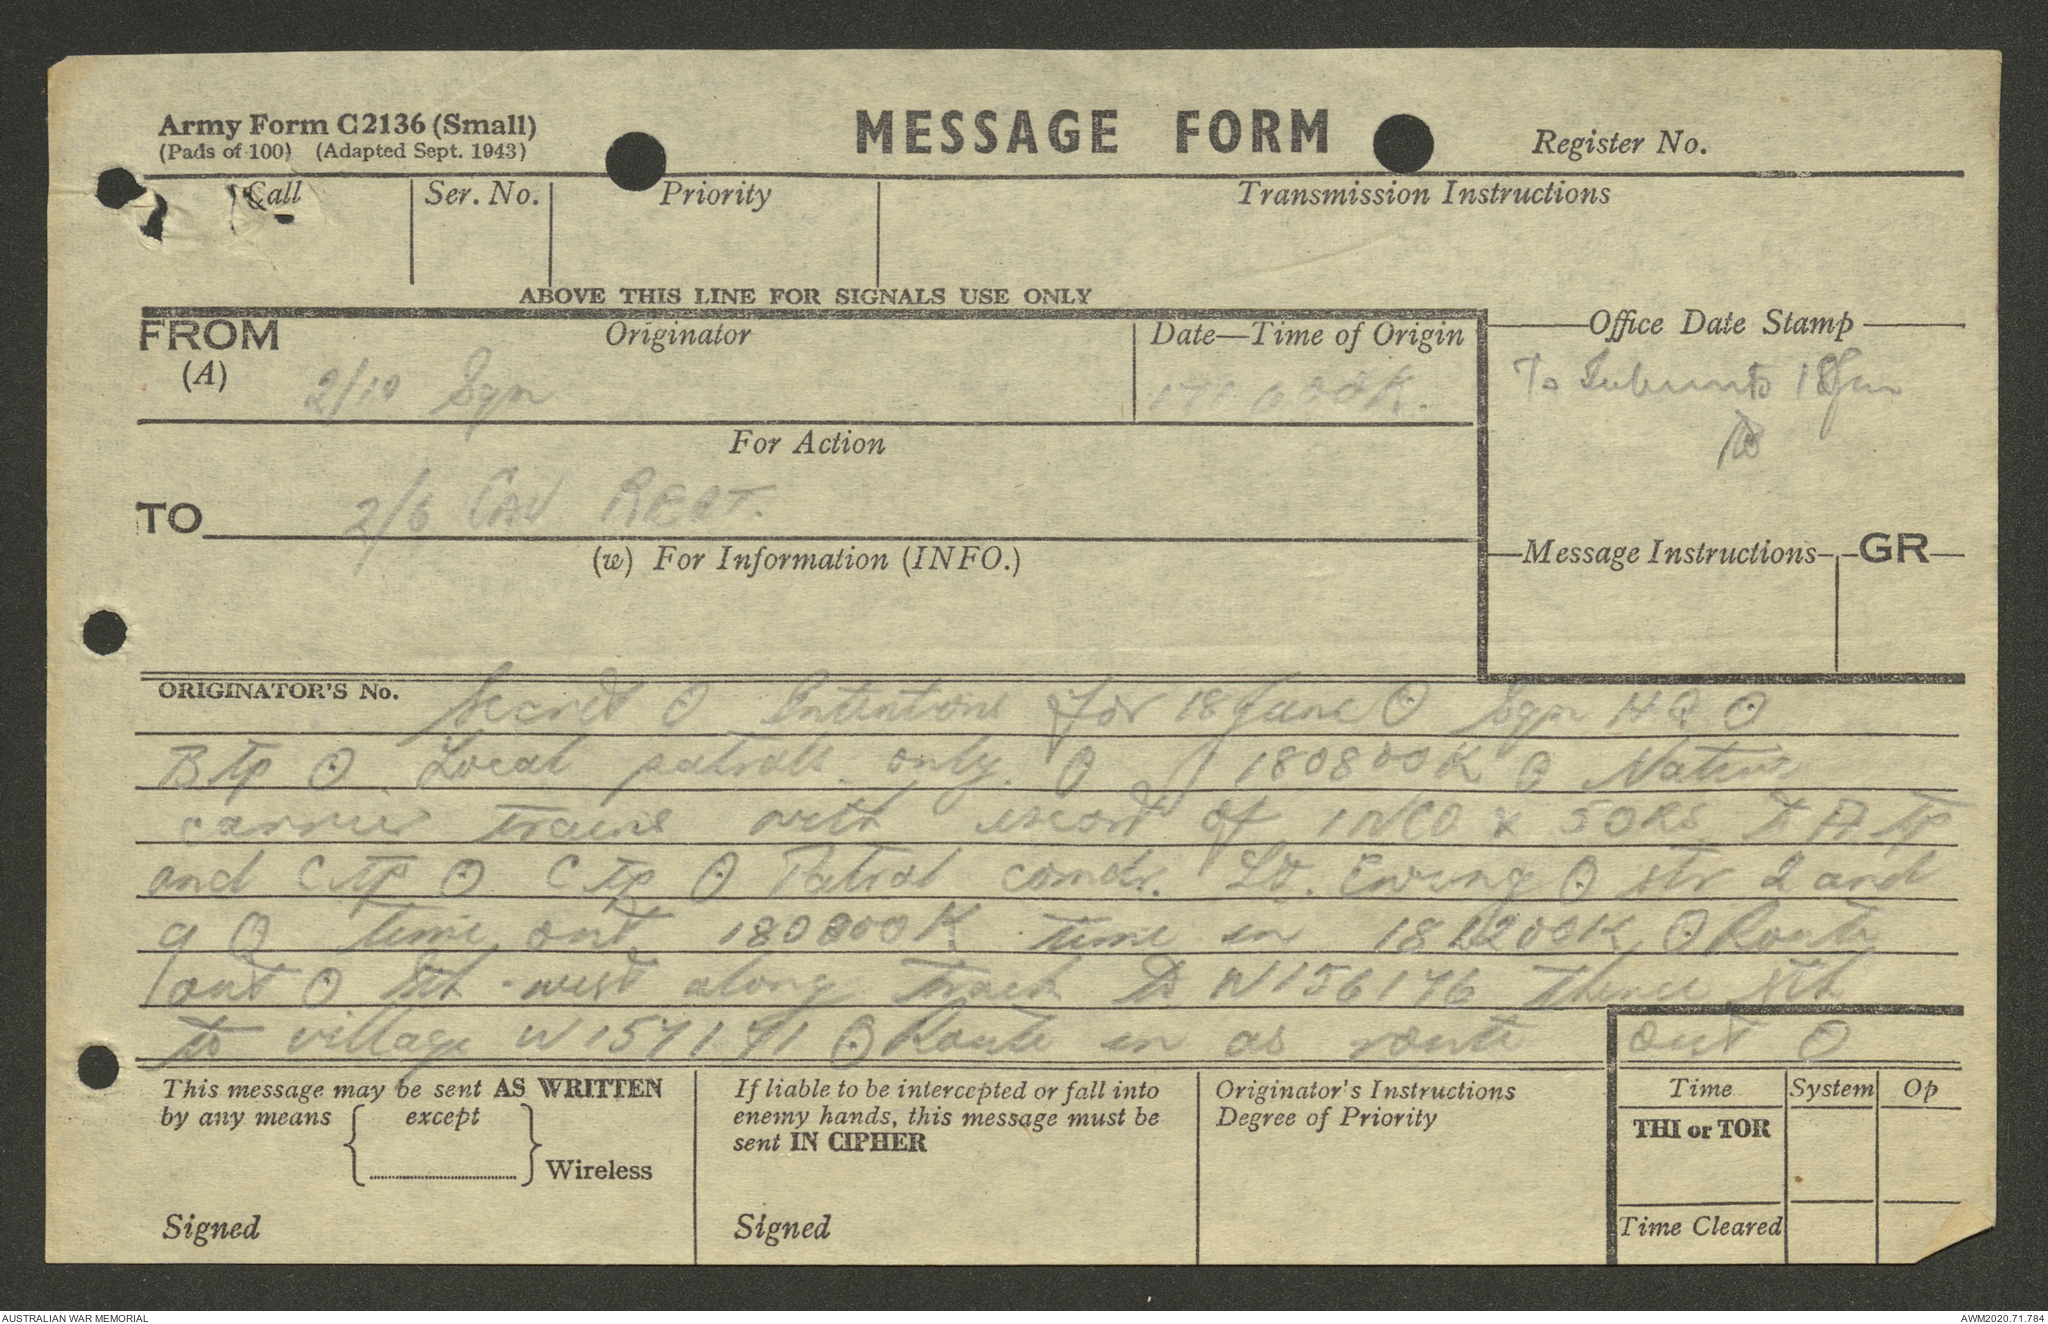 Army Form C2136 (Small)
(Pads of 100) (Adapted Sept. 1943)
MESSAGE FORM
Register No.
Call
Ser. No.
Priority
Transmission Instructions
ABOVE THIS LINE FOR SIGNALS USE ONLY
FROM
(A)
Originator
2/10 Sqn
Date—Time of Origin
Office Date Stamp
To Subunits 18 Jun
For Action
TO
2/6 CAV REGT.
(w) For Information (INFO.)
Message Instructions
GR
ORIGINATOR'S No.
Secret O Intentions for 18 June O Sqn HQ O
B Tp O Local patrols only. O 180800K O Native
carrier trains with escort of 1 NCO & 5 ORS to A Tp
and C Tp O C Tp O Patrol comdr. Lt. Ewing O str 2 and
9 O Time out 180800K time in 181200K O Route
out O Sth-west along track to W156176 thence Nth
to village W 157171 O Route in as route out O
This message may be sent AS WRITTEN
by any means { except
} Wireless
Signed
If liable to be intercepted or fall into
enemy hands, this message must be
sent IN CIPHER
Signed
Originator's Instructions
Degree of Priority
Time
System
Op
THI or TOR
Time Cleared
AUSTRALIAN WAR MEMORIAL
AWM2020.71.784